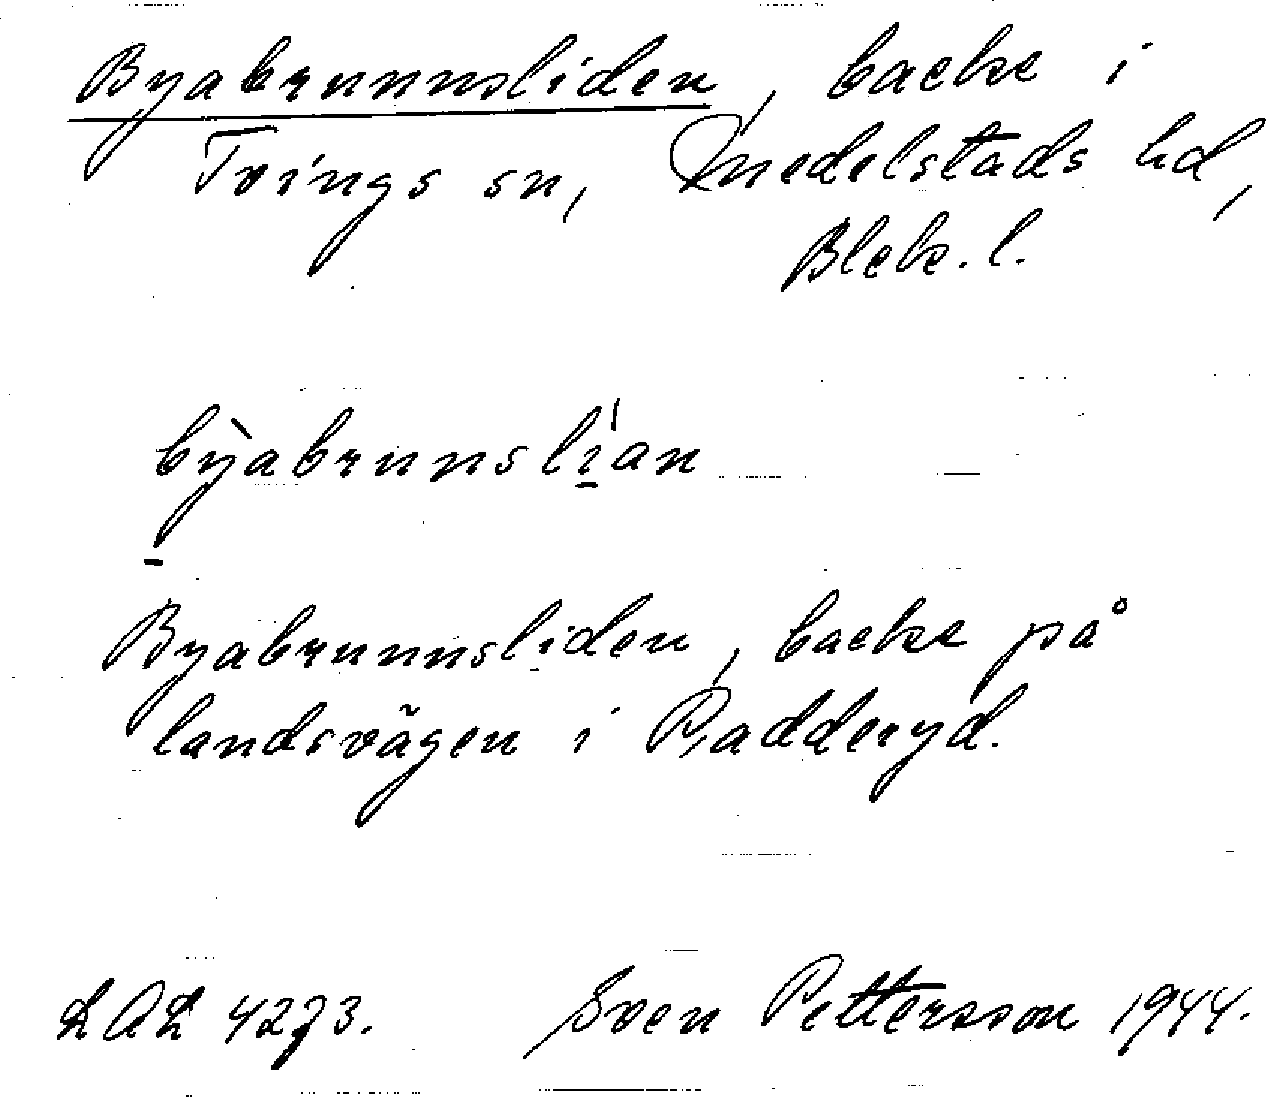 Byabrunnsliden, backe i
Tvings sn, Medelstads hd,
Blek. l.
bỳabrunslían
Byabrunnsliden, backe på
landsvägen i Radderyd.
LAL 4273. Sven Pettersson 1944.